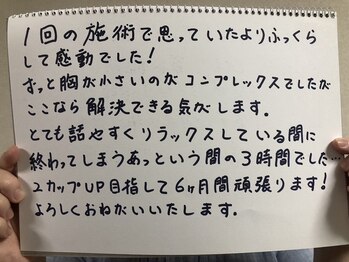 1回の施術で思っていたよりふっくら
して感動でした!
ずっと胸が小さいのがコンプレックスでしたが
ここなら解決できる気がします.
とても話やすくリラックスしている間に
終わってしまうあっという間の3時間でした…
2カップUP目指して6ヶ月間頑張ります!
よろしくおねがいいたします.